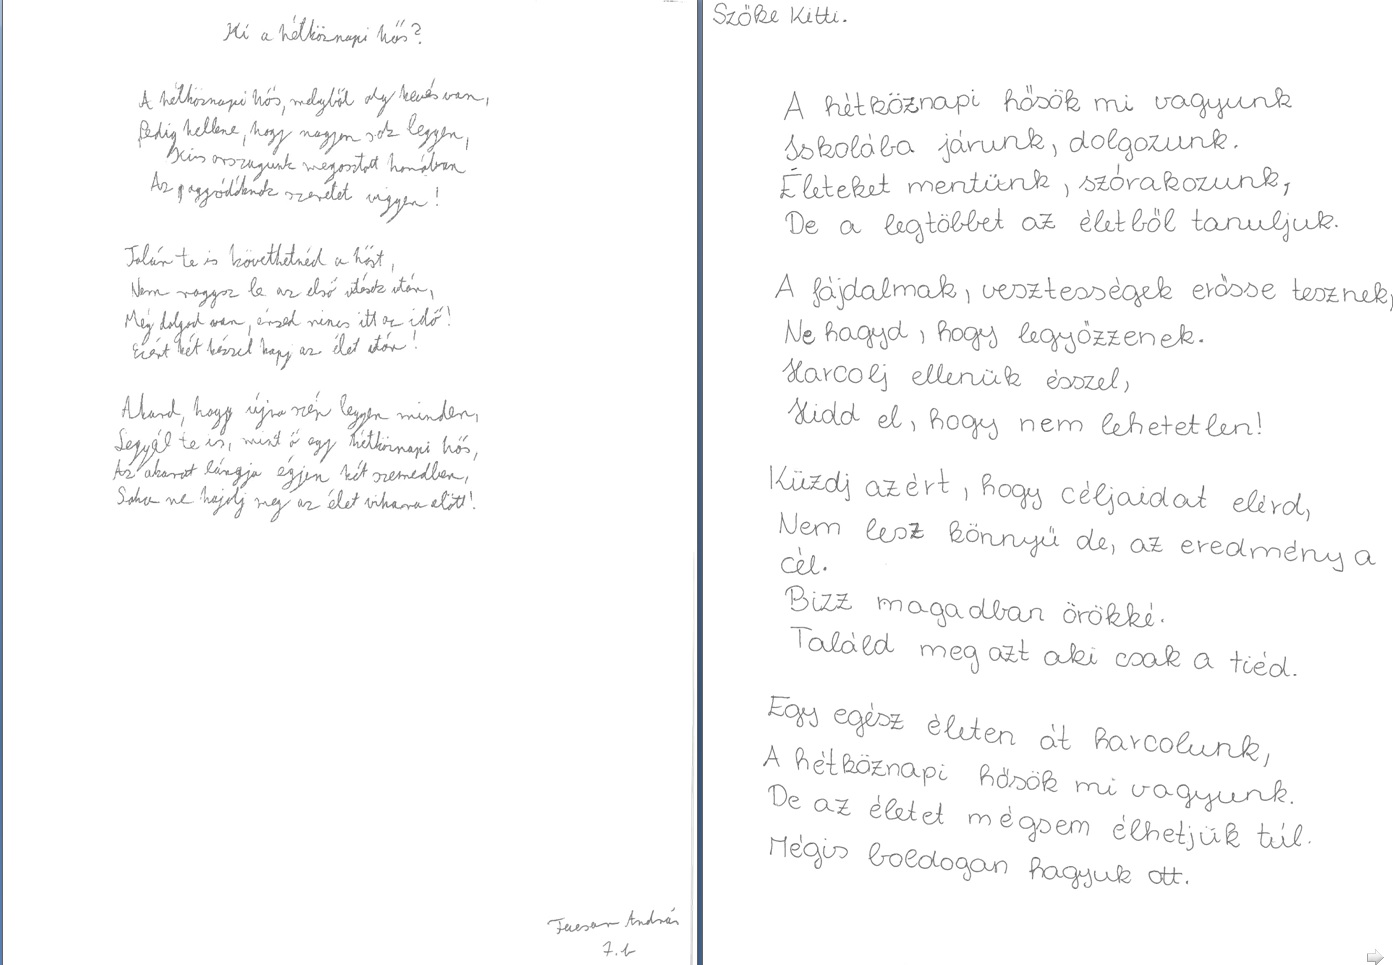 Ki a hétköznapi hős?
A hétköznapi hős, melyből oly kevés van,
Pedig kellene, hogy nagyon sok legyen,
Kis országunk megosztott honában
Az aggódóknak szeretet vigyen!
Talán te is követhetnéd a hőst,
Nem vagysz le az első ütések után,
Még dolgod van, érsed nincs itt az idő!
Ezért két kézzel kapj az élet után!
Akard, hogy újra szép legyen minden,
Legyél te is, mint ő egy hétköznapi hős,
Az akarat lángja égjen két szemedben,
Soha ne hajolj meg az élet vihara előtt!
András
7.b
Szőke Kitti.
A hétköznapi hősök mi vagyunk
Iskolába járunk, dolgozunk.
Életeket mentünk, szórakozunk,
De a legtöbbet az életből tanuljuk.
A fájdalmak, vesztességek erősse tesznek,
Ne hagyd, hogy legyőzzenek.
Harcolj ellenük ésszel,
Hidd el, hogy nem lehetetlen!
Küzdj azért, hogy céljaidat elérd,
Nem lesz könnyű de, az eredmény a
cél.
Bizz magadban örökké.
Találd meg azt aki csak a tiéd.
Egy egész életen át harcolunk,
A hétköznapi hősök mi vagyunk.
De az életet mégsem élhetjük túl.
Mégis boldogan hagyuk ott.